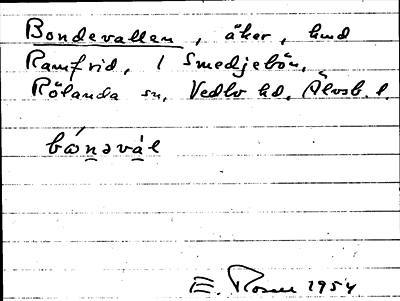 Bondevallen, åker, hmd
Ramfrid, 1 Smedjebön,
Rölanda sn, Vedbo hd, Älvsb. l.
E. Rosen 1954